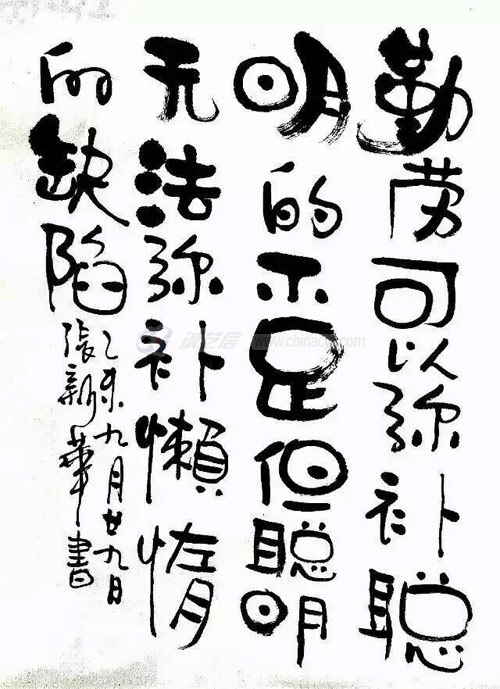 勤劳可以弥补聪
明的不足但聪明
无法弥补懒惰
的缺陷
乙未九月廿九日
張新華書
www.chinacyx.com